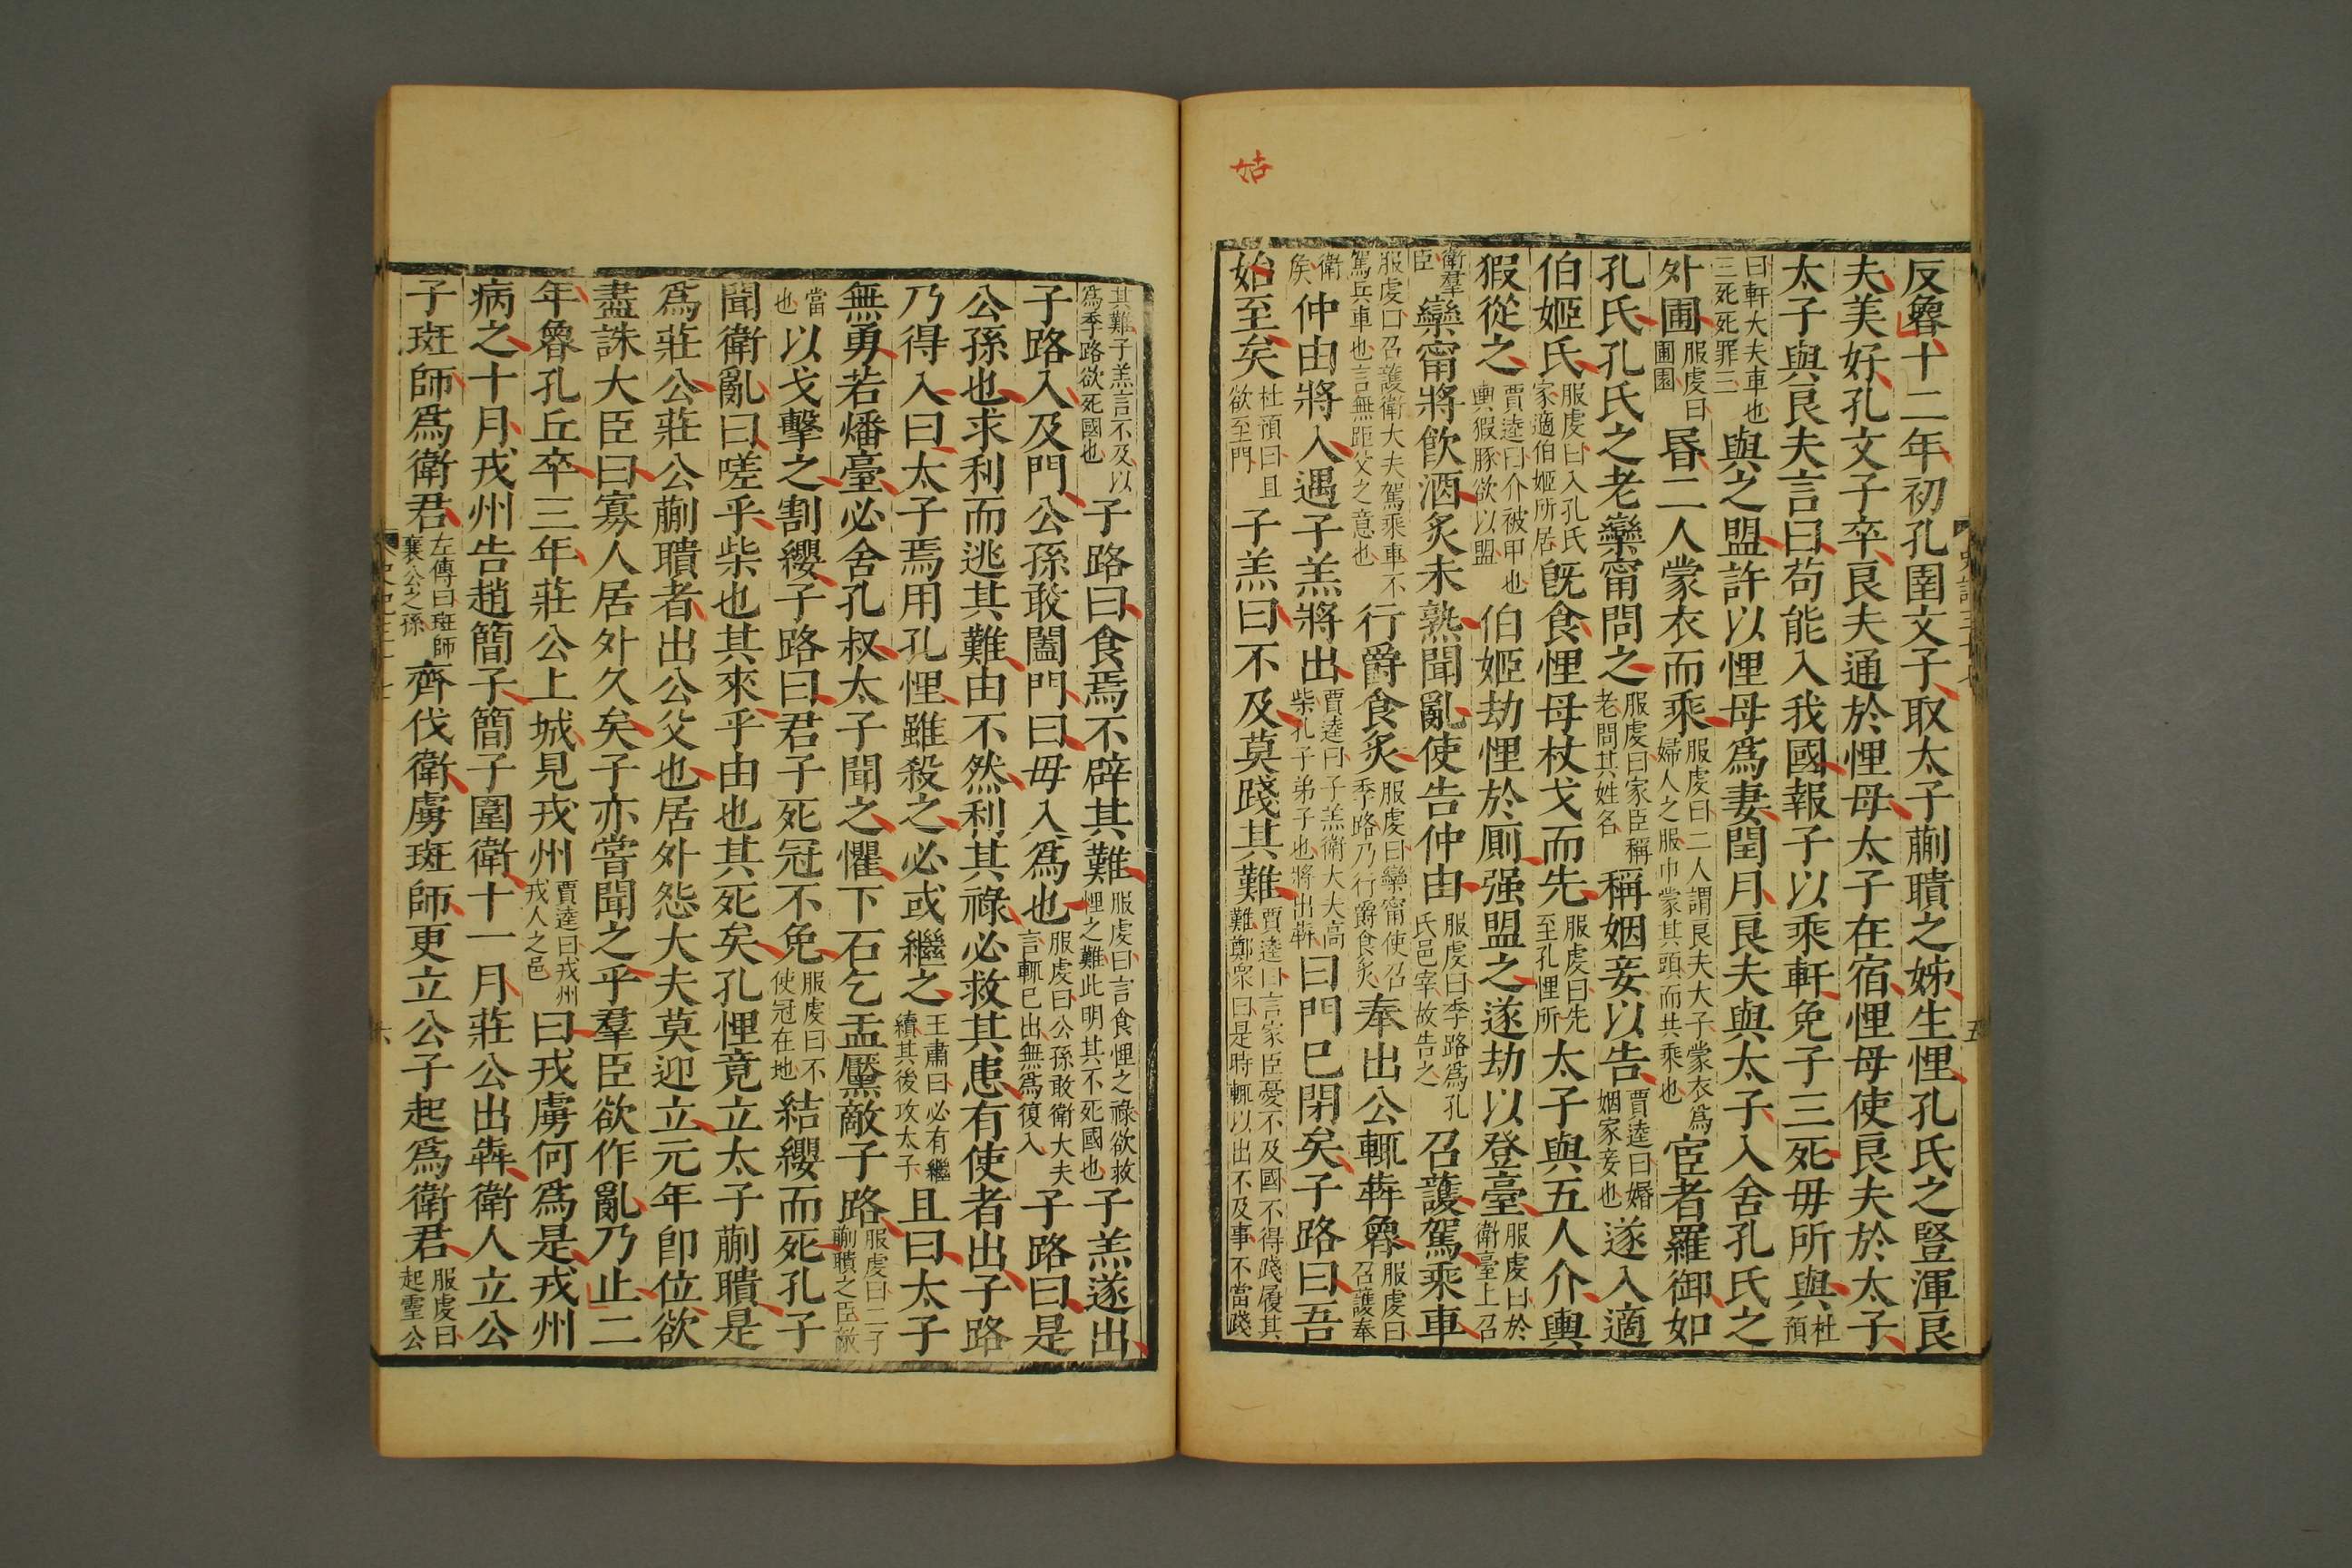 姑
反魯十二年初孔圉文子取太子蒯聵之姊生悝孔氏之豎渾良
夫美好孔文子卒良夫通於悝母太子在宿悝母使良夫於太子
太子與良夫言曰苟能入我國報子以乘軒免子三死毋所與杜預
曰軒大夫車也三死死罪三與之盟許以悝母爲妻閏月良夫與太子入舍孔氏之
外圃服虔曰圃園昬二人蒙衣而乘服虔曰二人謂良夫大子蒙衣爲婦人之服巾蒙其頭而共乘也宦者羅御如
孔氏孔氏之老欒甯問之服虔曰家臣稱老問其姓名稱姻妾以告賈逵曰婚姻家妾也遂入適
伯姬氏服虔曰入孔氏家適伯姬所居旣食悝母杖戈而先服虔曰先至孔悝所太子與五人介輿
猳從之賈逵曰介被甲也輿猳豚欲以盟伯姬劫悝於厠强盟之遂劫以登臺服虔曰於衛臺上召
衛羣臣欒甯將飮酒炙未熟聞亂使告仲由服虔曰季路爲孔氏邑宰故告之召護駕乘車
服虔曰召護衛大夫駕乘車不駕兵車也言無距父之意也行爵食炙服虔曰欒甯使召季路乃行爵食炙奉出公輒犇魯服虔曰召護奉
衛矦仲由將入遇子羔將出賈逵曰子羔衛大夫高柴孔子弟子也將出犇曰門已閉矣子路曰吾
始至矣杜預曰且欲至門子羔曰不及莫踐其難賈逵曰言家臣憂不及國不得踐履其難鄭眾曰是時輒以出不及事不當踐
其難子羔言不及以爲季路欲死國也子路曰食焉不辟其難服虔曰言食悝之祿欲救悝之難此明其不死國也子羔遂出
子路入及門公孫敢闔門曰毋入爲也服虔曰公孫敢衛大夫言輒已出無爲復入子路曰是
公孫也求利而逃其難由不然利其祿必救其患有使者出子路
乃得入曰太子焉用孔悝雖殺之必或繼之王肅曰必有繼續其後攻太子且曰太子
無勇若燔臺必舍孔叔太子聞之懼下石乞盂黶敵子路服虔曰二子蒯聵之臣敵
當也以戈擊之割纓子路曰君子死冠不免服虔曰不使冠在地結纓而死孔子
聞衛亂曰嗟乎柴也其來乎由也其死矣孔悝竟立太子蒯聵是
爲莊公莊公蒯聵者出公父也居外怨大夫莫迎立元年卽位欲
盡誅大臣曰寡人居外久矣子亦嘗聞之乎羣臣欲作亂乃止二
年魯孔丘卒三年莊公上城見戎州賈逵曰戎州戎人之邑曰戎虜何爲是戎州
病之十月戎州告趙簡子簡子圍衛十一月莊公出犇衛人立公
子斑師爲衛君左傳曰斑師襄公之孫齊伐衛虜斑師更立公子起爲衛君服虔曰起靈公